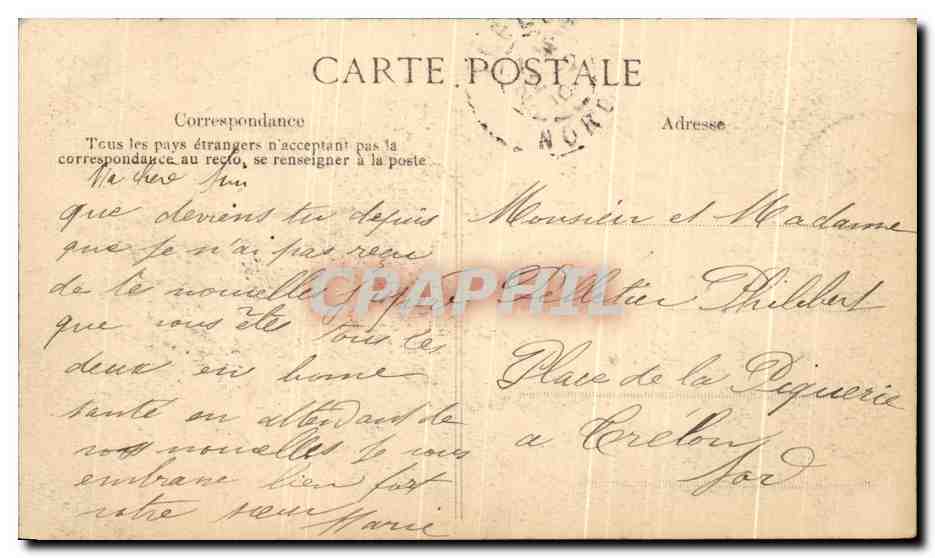 CARTE POSTALE
NORD
Correspondance
Tous les pays étrangers n'acceptent pas la
correspondance au recto, se renseigner à la poste
Ma chere
que deviens tu depuis
que je n'ai pas recu
de te nouvelles
que vous êtes tous les
deux en bonne
santé en attendant de
vos nouvelles je vous
embrasse bien fort
votre sœur Marie
Adresse
Monsieur et Madame
Pelletier Philibert
Place de la Piquerie
a Trélon
Nord
CPAPHIL